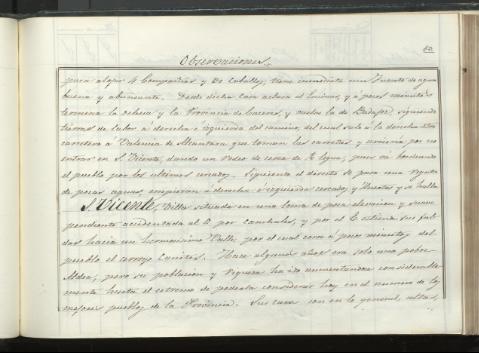 Observaciones.
80.
para alojar 4 Compañias y 20 Caballos, tiene inmediata una Fuente de agua
buena y abundante. Desde dicha casa aclara el y á pocos minutos
termina la dehesa y la Provincia de Caceres, y vuelve la de Badajoz siguiendo
tierras de labor á derecha é izquierda del camino, del cual sale á la derecha otra
carretera á Valencia de Alcantara que toman las carretas, y arrieria por no
entrar en S. Vicente, dando un rodeo de cerca de legua, pues va bordeando
el pueblo por los ultimos cercados. Siguiendo el directo se pasa una
de pocas aguas, empiezan á derecha é izquierda cercados y Huertas y se halla
S. Vicente, Villa situada en una loma de poca elevacion y suave
pendiente accidentada al E por canchales, y por el O estiende sus fal-
das hacia un hermosisimo Valle, por el cual corre á pocos minutos del
pueblo el arroyo Hace algunos años era solo una pobre
Aldea, pero su poblacion y riqueza ha ido aumentandose considerable-
mente hasta el estremo de poderla considerar hoy en el numero de los
mejores pueblos de la Provincia. Sus casas son en lo general, altas,